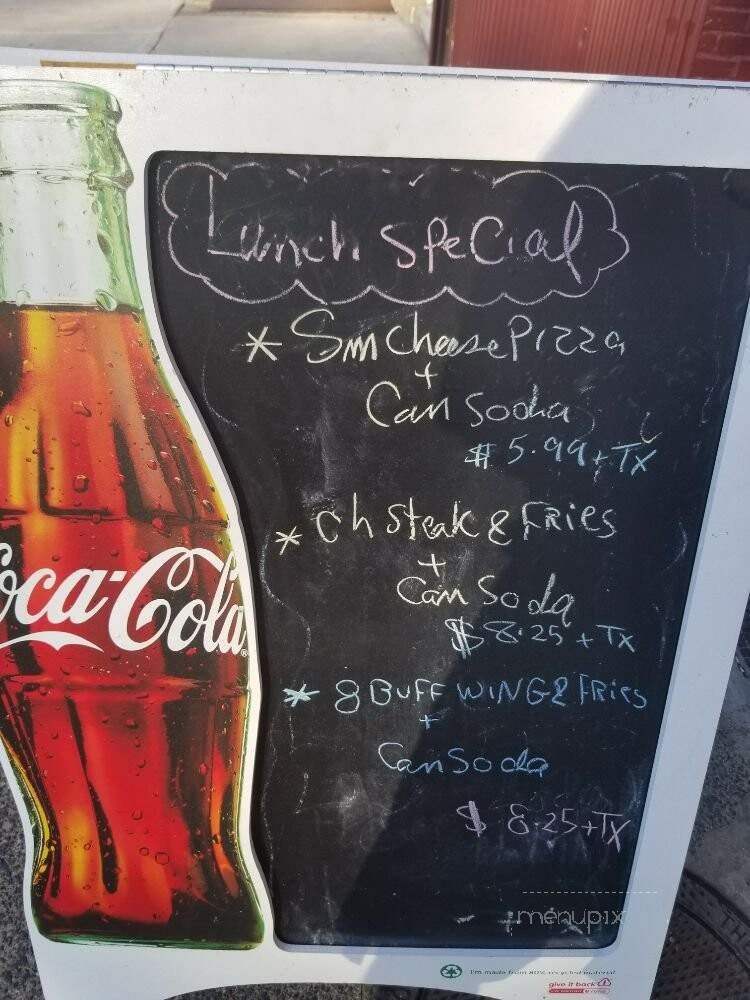 Lunch Special
* Sm Cheese Pizza
+
Can Soda
$5.99+Tx
* Ch Steak & Fries
+
Can Soda
$8.25+Tx
* 8 Buff Wing & Fries
+
Can Soda
$8.25+Tx
Coca-Cola
menupix
I'm made from 80% recycled material
give it back